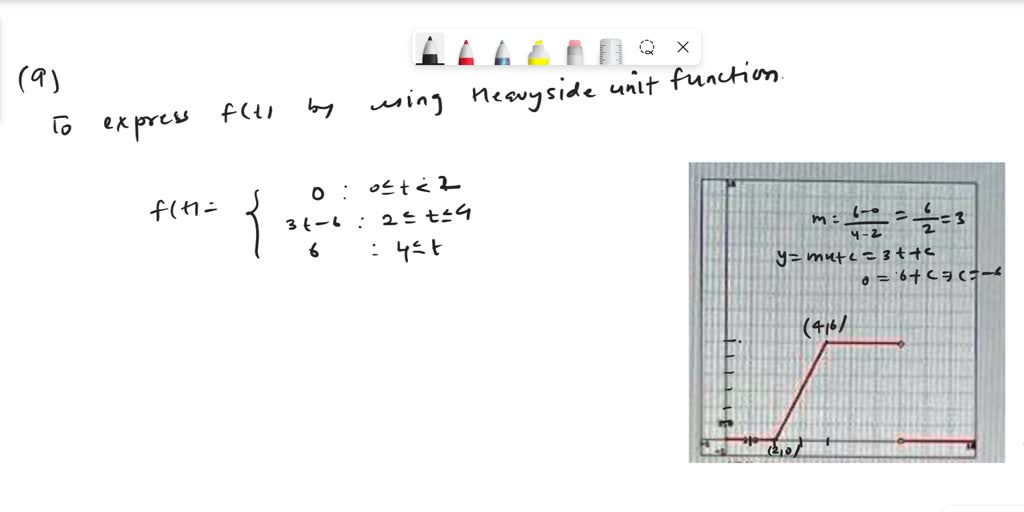 (9)
To express f(t) by using Heavyside unit function.
f(t) = { 0 : 0 ≤ t < 2
3t-6 : 2 ≤ t ≤ 4
6 : 4 ≤ t
m = 6-0/4-2 = 6/2 = 3
y = mx+c = 3t+c
0 = 6+c ⇒ c = -6
(4,6)
(2,0)